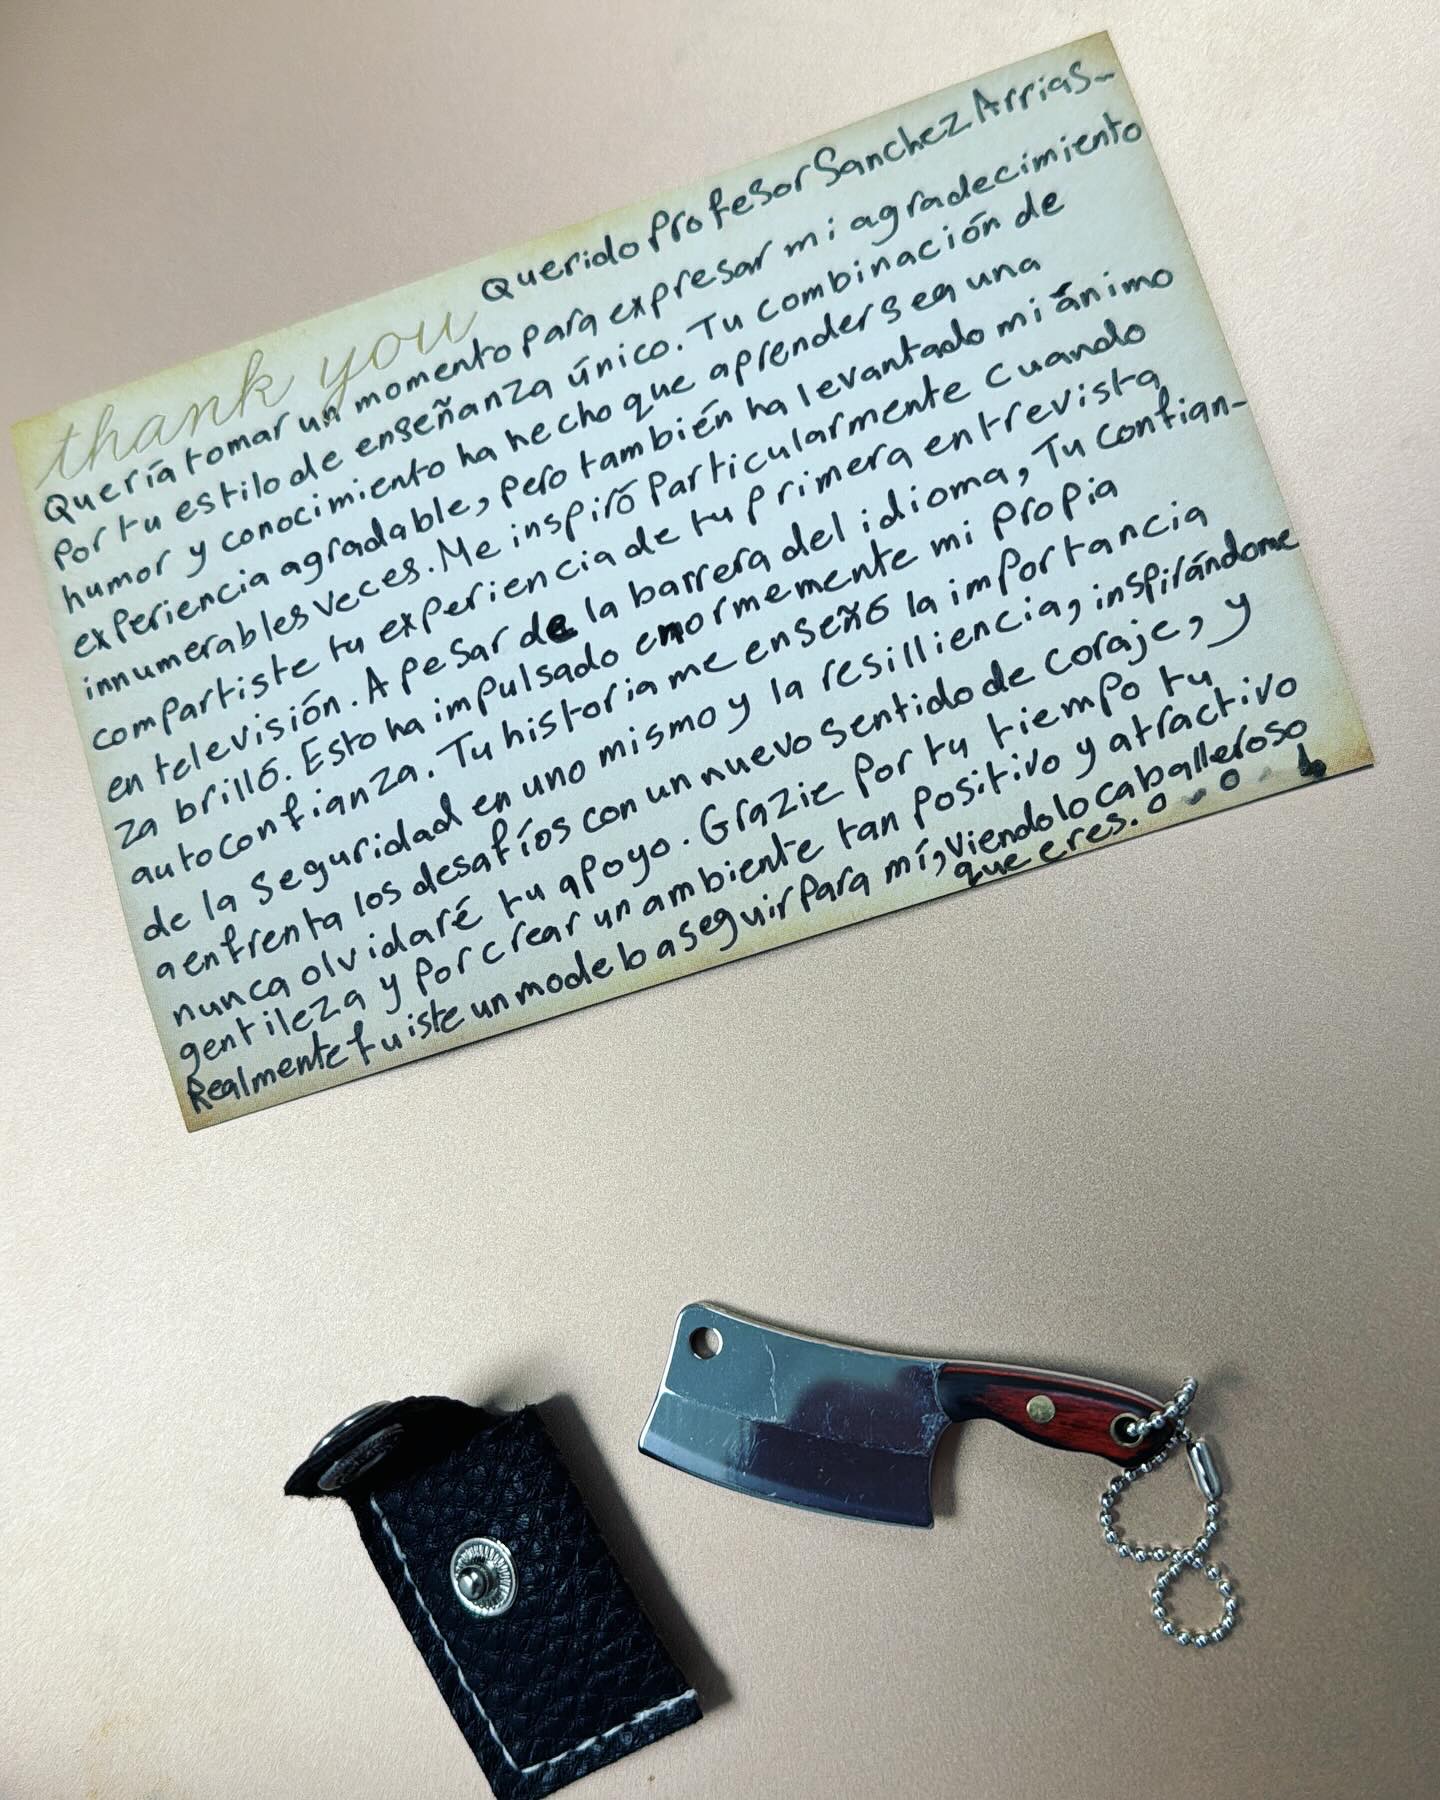 Querido Profesor Sanchez Arrias-
thank you
Quería tomar un momento para expresar mi agradecimiento
por tu estilo de enseñanza único. Tu combinación de
humor y conocimiento ha hecho que aprender sea una
experiencia agradable, pero también ha levantado mi ánimo
innumerables veces. Me inspiró particularmente cuando
compartiste tu experiencia de tu primera entrevista
en televisión. A pesar de la barrera del idioma, Tu confian-
za brilló. Esto ha impulsado enormemente mi propia
autoconfianza. Tu historia me enseñó la importancia
de la seguridad en uno mismo y la resilliencia, inspirándome
a enfrenta los desafíos con un nuevo sentido de coraje, y
nunca olvidaré tu apoyo. Grazie por tu tiempo tu
gentileza y por crear un ambiente tan positivo y atractivo
Realmente fuiste un modelo a seguir para mí, viendo lo caballeroso
que eres.